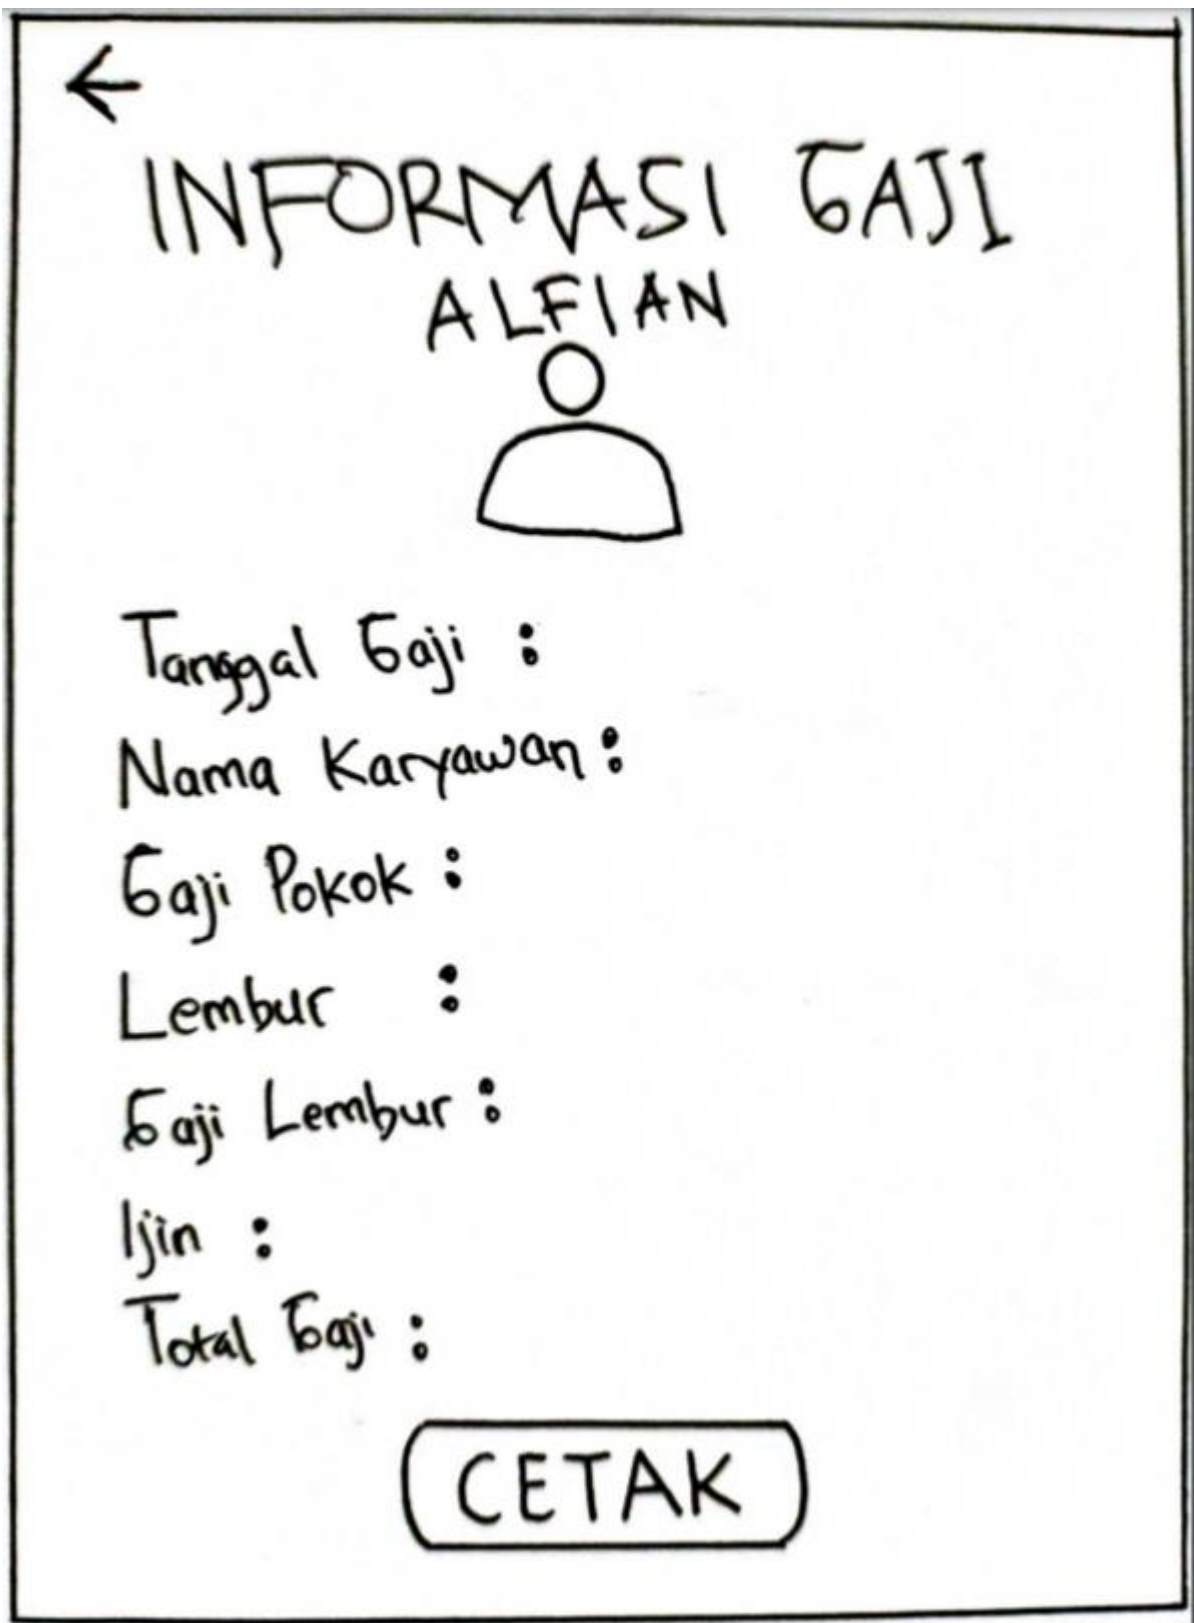 INFORMASI GAJI
ALFIAN
Tanggal Gaji :
Nama Karyawan :
Gaji Pokok :
Lembur :
Gaji Lembur :
Ijin :
Total Gaji :
CETAK